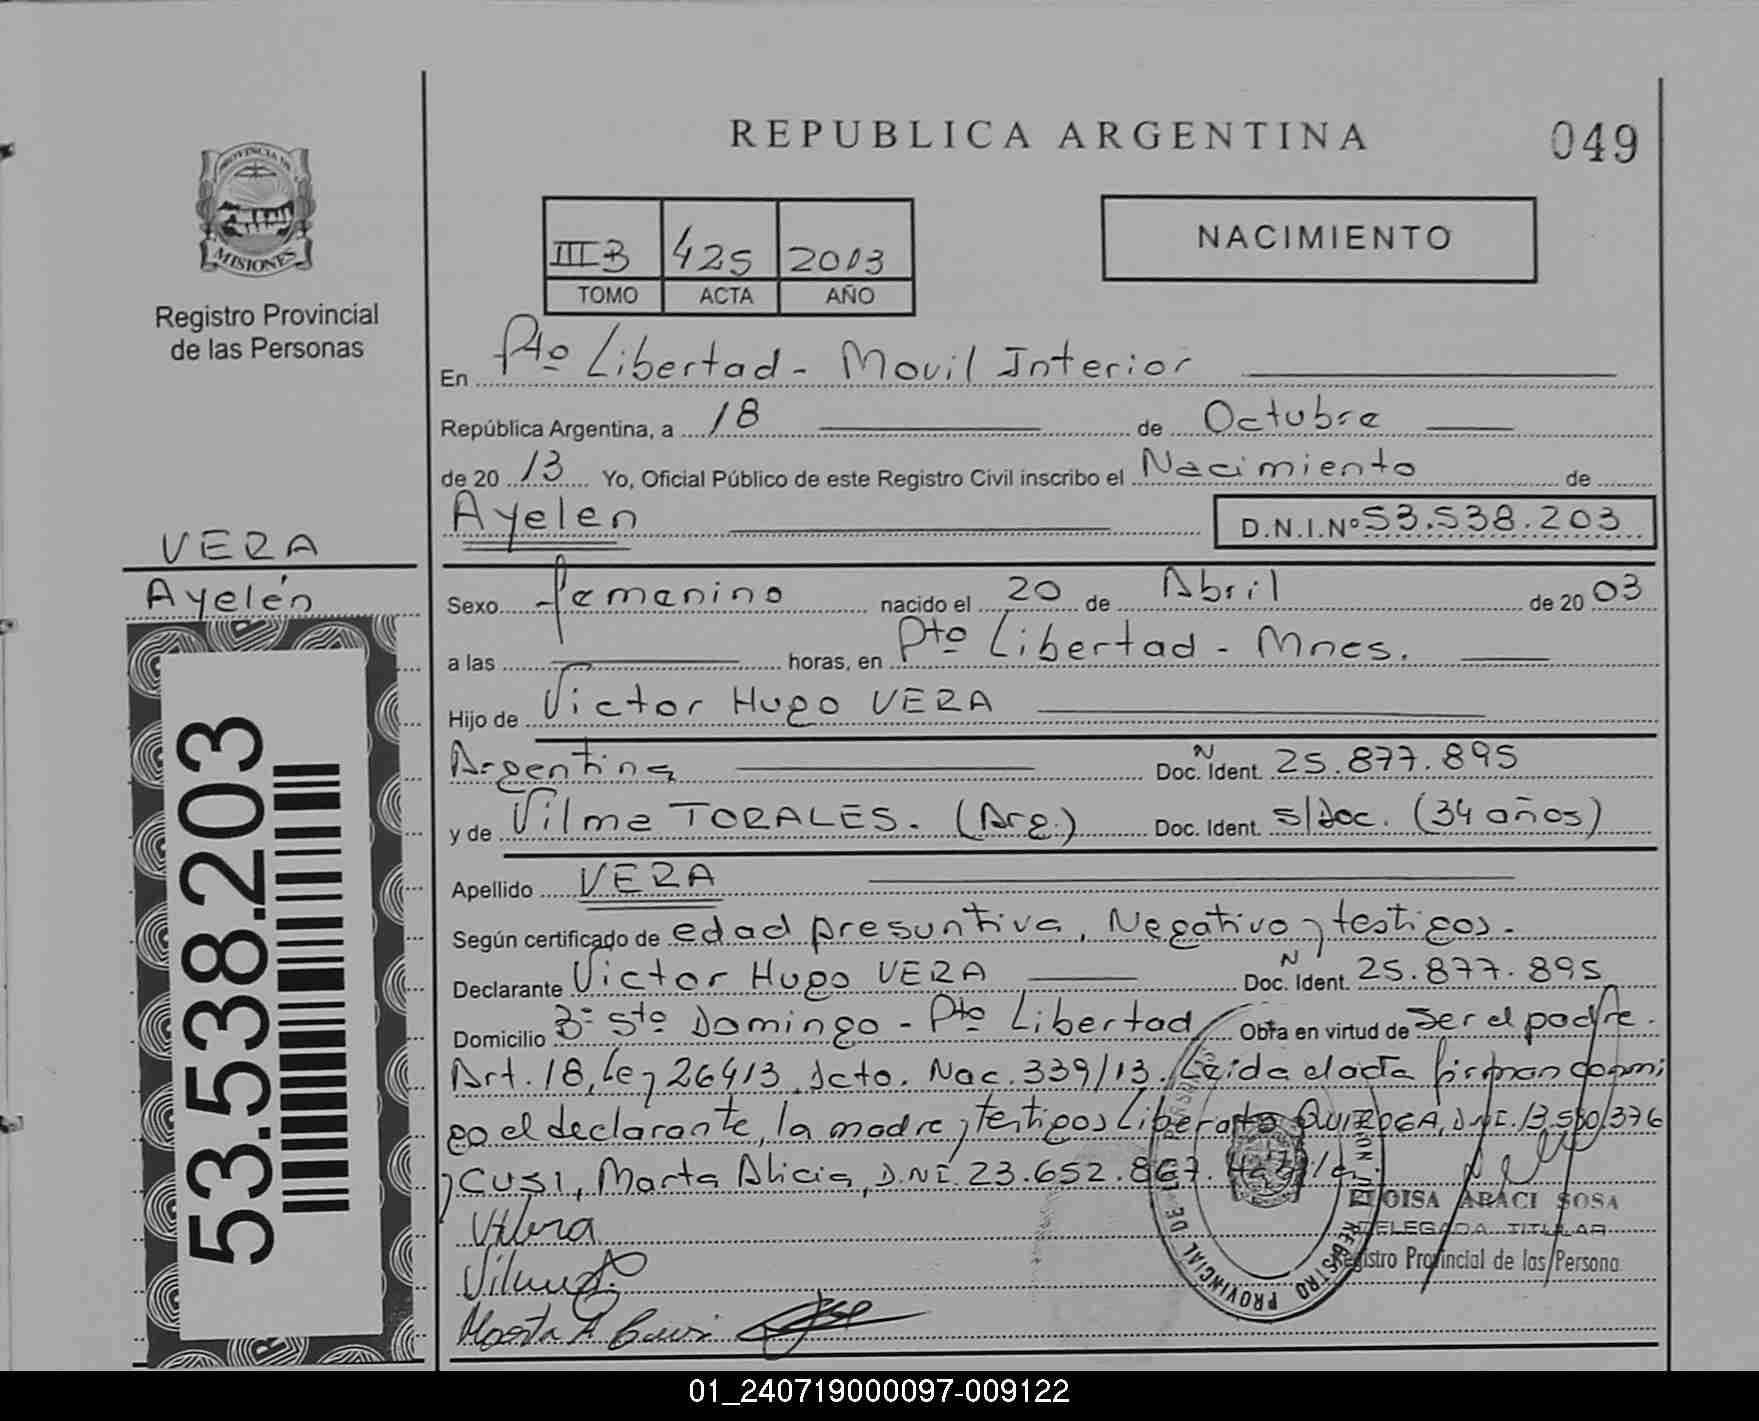 REPUBLICA ARGENTINA
049
PROVINCIA DE
MISIONES
Registro Provincial
de las Personas
IIIB 425 2013
TOMO ACTA AÑO
NACIMIENTO
En Pto Libertad - Movil Interior
República Argentina, a 18 de Octubre
de 20 13 Yo, Oficial Público de este Registro Civil inscribo el Nacimiento de
Ayelen D.N.I.Nº 53.538.203
VERA
Ayelén
53.538.203
Sexo femenino nacido el 20 de Abril de 20 03
a las horas, en Pto Libertad - Mnes.
Hijo de Victor Hugo VERA
Argentina Doc. N Ident. 25.877.895
y de Vilma TORALES. (Arg.) Doc. Ident. s/doc. (34 años)
Apellido VERA
Según certificado de edad presuntiva, Negativo y testigos.
Declarante Victor Hugo VERA Doc. N Ident. 25.877.895
Domicilio Bº Sto Domingo - Pto Libertad Obra en virtud de ser el padre.
Art. 18, Ley 26413, Dcto. Nac. 339/13. Leida el acta firman conmi
go el declarante, la madre y testigos Liberato QUIROGA, DNI. 13.550.376
y CUSI, Marta Alicia, D.NI. 23.652.867.
ELOISA ARACI SOSA
DELEGADA TITULAR
Registro Provincial de las Persona
REGISTRO PROVINCIAL DE
01_240719000097-009122